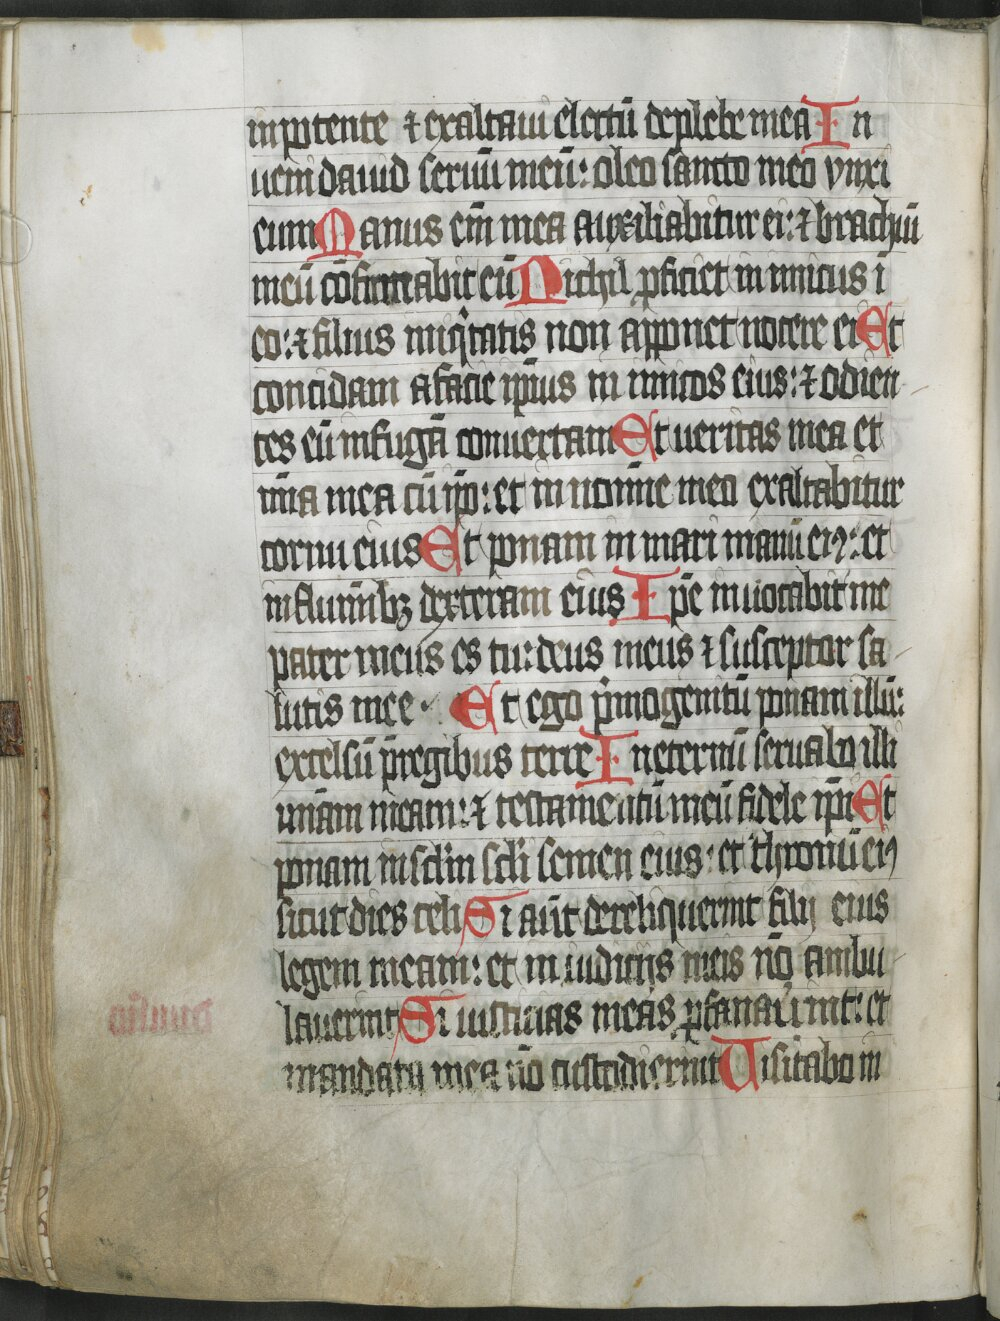 in potente ⁊ exaltaui electū de plebe mea In
ueni dauid seruū meū: oleo sancto meo vnxi
eum Manus em̄ mea auxiliabitur ei: ⁊ brachiū
meū cōfirmabit eū Nichil ꝓficiet in imicus ī
eo: ⁊ filius iniq̄tatis non apponet nocere ei Et
concidam a facie ip̄ius in imicos eius: ⁊ odien
tes eū in fugā conuertam Et ueritas mea et
mīa mea cū ip̄o: et in nomīe meo exaltabitur
cornu eius Et ponam in mari manū eiꝰ: et
in flumībꝫ dexteram eius Ip̄e inuocabit me
pater meus es tu: deus meus ⁊ susceptor sa
lutis mee Et ego p̄mogenitū ponam illū:
excelsū p̄ regibus terre In eternū seruabo illi
mīam meam: ⁊ testamentū meū fidele ip̄i Et
ponam in sclm̄ scli semen eius: et thronū eiꝰ
sicut dies celi Si aūt dereliquerint filij eius
legem meam: et in iudicijs meis nō ambu
lauerint Si iusticias meas ꝓfanauīnt: et
mandata mea nō custodierint Uisitabo in